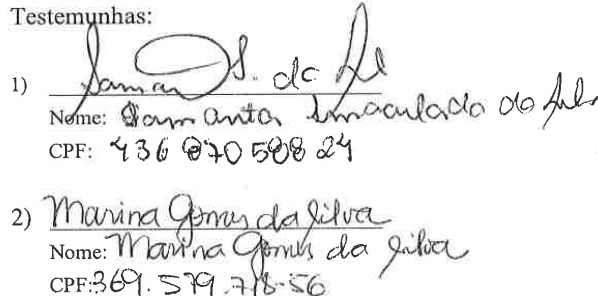 Testemunhas:
1) Saman S. da
Nome: Samanta Imaculada da Silva
CPF: 436 870 508 24
2) Marina Gomes da Silva
Nome: Marina Gomes da Silva
CPF: 369.579.718-56